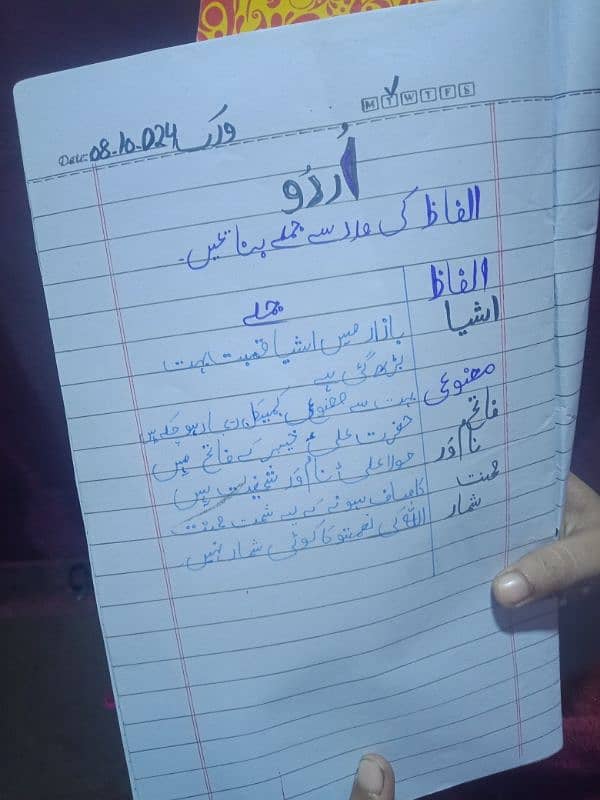 M T W T F S
Date: 08-10-024 ورک
اُردُو
الفاظ کی مدد سے جملے بنائیں۔
الفاظ جملے
اشیا بازار میں اشیا قیمت بہت
بڑھ گئی ہے
مصنوعی بہت سے مصنوعی کیمیکل تیار ہو چکے ہیں
فاتح حضرت علیؑ خیبر کے فاتح ہیں
نام ور مولا علیؑ نام ور شخصیت ہیں
محنت کامیاب ہونے کے لیے محنت
شمار اللہ کی نعمتو کا کوئی شمار نہیں